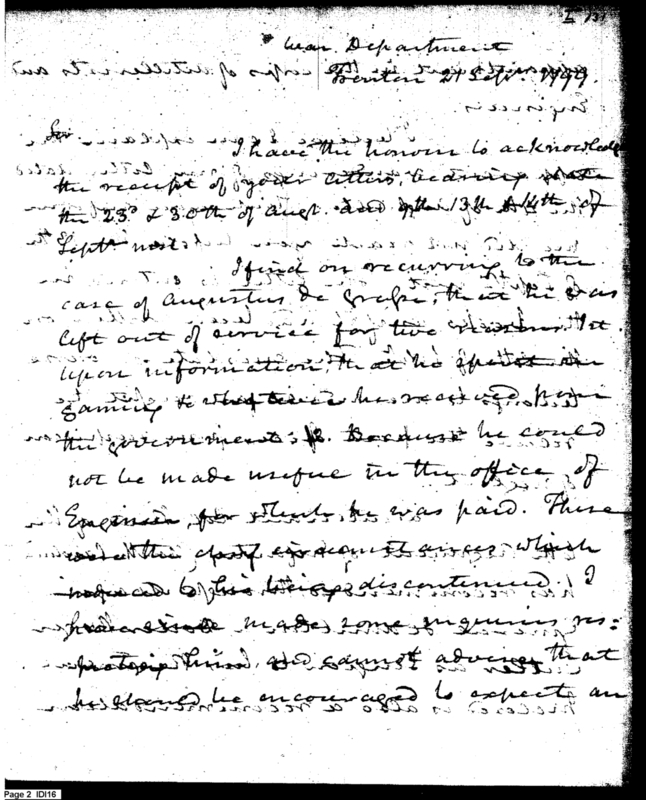 War Department
Trenton 21 Sepr. 1799.
Sir
I have the honour to acknowledge
the receipt of your letters, bearing date
the 23d & 30th of Augt. and 9th 13th & 14th of
Septr inst.
I find on recurring to the
case of Augustus De Grasse, that he was
left out of service for two reasons. 1st.
Upon information that he spent in
gaming he received from
the government: 2. Because he could
not be made useful in the office of
Engineer, for which he was paid. These
were the chief circumstances which
induced to his being discontinued. I
have since made some inquiries res:
pecting him, and cannot advise, that
he should be encouraged to expect an
Page 2 IDI16